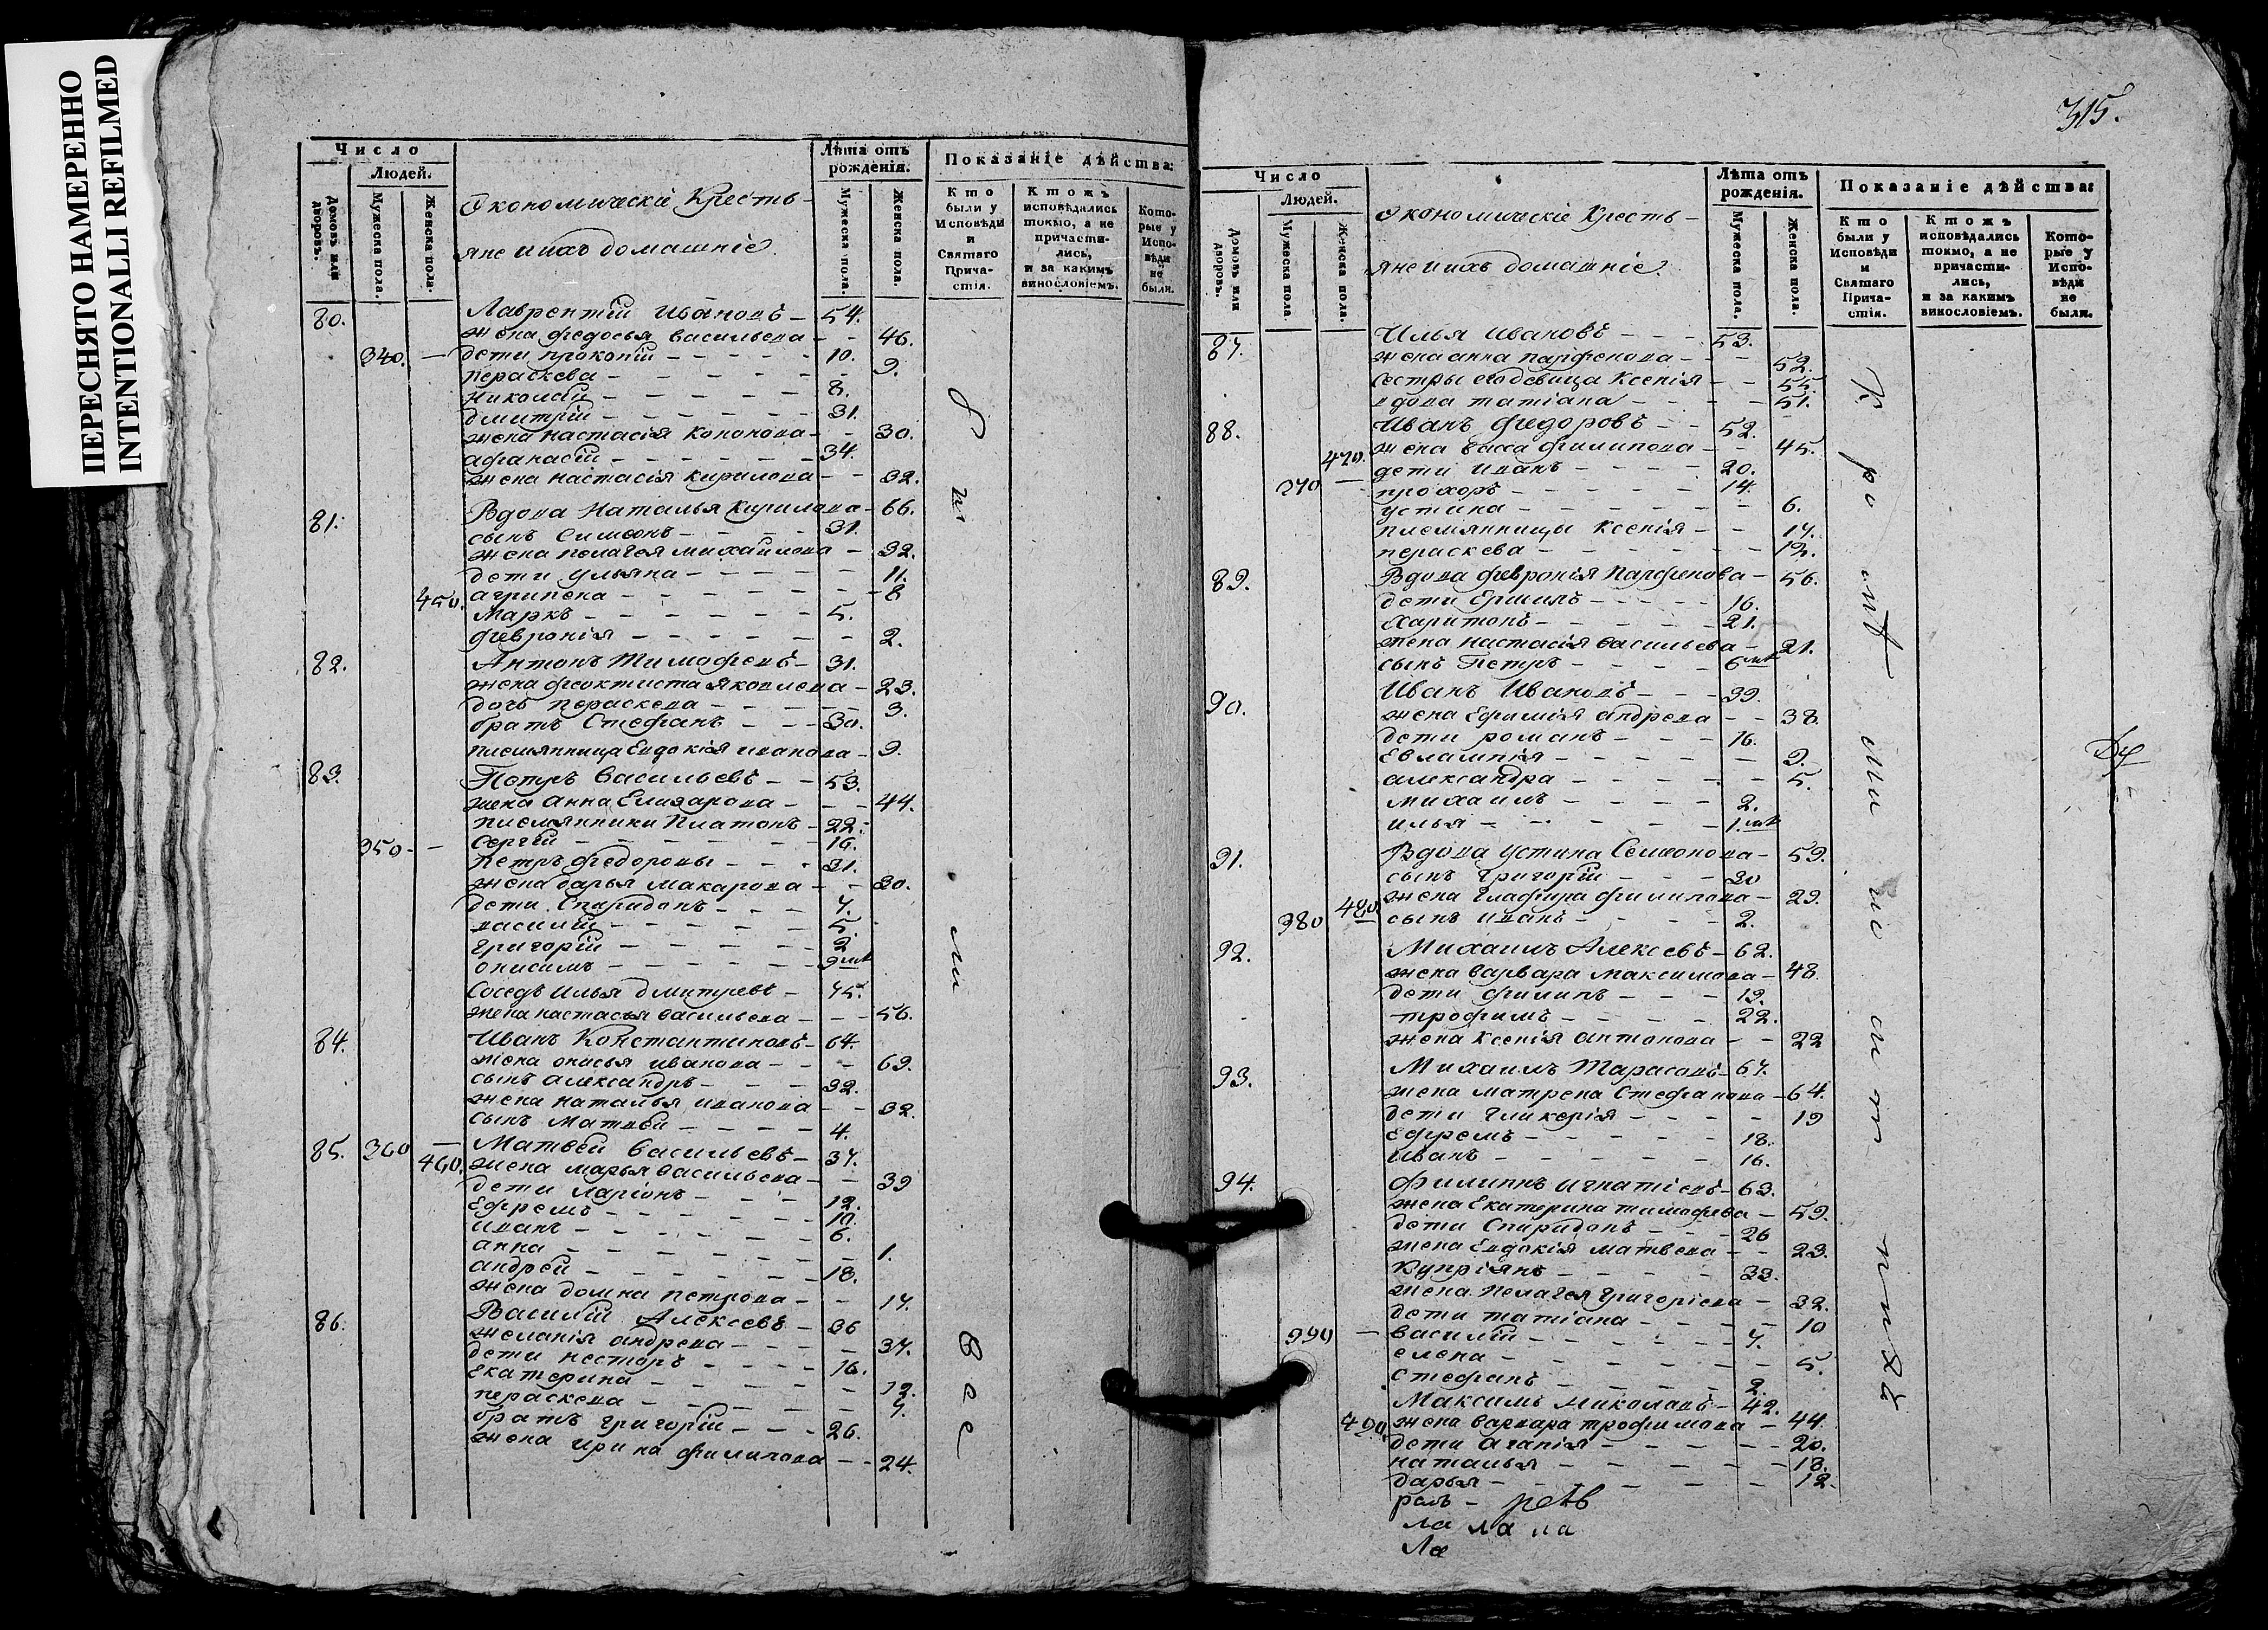 ПЕРЕСНЯТО НАМЕРЕННО
INTENTIONALLI REFILMED
Число
Людей.
Домовъ или дворовъ.
Мужеска пола.
Женска пола.
Экономическіе Кресть-
яне и ихъ домашніе
Лѣта отъ рожденія.
Мужеска пола.
Женска пола.
Показаніе дѣйства:
Кто были у Исповѣди и Святаго Причастія.
Ктожъ исповѣдались токмо, а не причастились, и за какимъ винословіемъ.
Которые у Исповѣди не были.
80. Лаврентій Ивановъ — 54.
жена федосья васильева — — 46.
340. — дети прокопій — — — — 10.
пераскева — — — — — 9.
николай — — — — 8.
дмитрій — — — — — 31.
жена настасія кононова — — 30.
афанасій — — — — — 34.
жена настасія кирилова — — 32.
81. Вдова Наталья Кирилова — 66.
сынъ Симеонъ — — — 31.
жена пелагея михайлова — 32.
дети ульяна — — — — 11.
450. агрипена — — — — — 8
маркъ — — — — — 5.
февронія — — — — — 2.
82. Антонъ Тимофеевъ — 31.
жена феоктиста яковлева — 23.
дочь пераскева — — — — 3.
братъ Стефанъ — — — 30.
племянница Евдокія иванова — 9.
83. Петръ Васильевъ — — 53.
жена анна Елизарова — — — 44.
племянники Платонъ — 22.
350 — — Сергей — — — — — 16.
Петръ федоровы — — — 31.
жена дарья макарова — — 30.
дети Спиридонъ — — — 7.
василій — — — — — 5.
григорій — — — — — 2
онисимъ — — — — — 9 мѣ
Соседъ илья дмитревъ — 45.
жена настасья васильева — — — 56.
84. Иванъ Константиновъ — 64.
жена онисья иванова — — — 63.
сынъ александръ — — — 32.
жена наталья иванова — — 32.
сынъ Матвей — — — — 4.
85. 360 — Матвей Васильевъ — 37.
460. жена марья васильева — — 39
дети ларіонъ — — — 12.
Ефремъ — — — — — 10.
иванъ — — — — — 6.
анна — — — — — — 1.
андрей — — — — — 18.
жена домна петрова — — 17.
86. Василій Алексеевъ — 36
жена андрева — — — 37.
дети несторъ — — — — 16.
Екатерина — — — — — 12.
пераскева — — — — — 7.
братъ григорій — — — 26.
жена ирина филипова — — 24.
были
Все
315.
Число
Людей.
Домовъ или дворовъ.
Мужеска пола.
Женска пола.
Экономическіе Кресть-
яне и ихъ домашніе
Лѣта отъ рожденія.
Мужеска пола.
Женска пола.
Показаніе дѣйства:
Кто были у Исповѣди и Святаго Причастія.
Ктожъ исповѣдались токмо, а не причастились, и за какимъ винословіемъ.
Которые у Исповѣди не были.
87. Илья Ивановъ — — — 53.
жена анна парфенова — — — 52.
сестры его девица Ксенія — — 55.
вдова татіана — — — — 51.
88. Иванъ Федоровъ — — 52.
жена васса филипова — — 45.
470. дети иванъ — — — — 20.
370 — прохоръ — — — — — 14.
устина — — — — — — 6.
племянницы Ксенія — — 17.
пераскева — — — — — — 12.
89. Вдова февронія Парфенова — 56.
дети Ермилъ — — — — 16.
Харитонъ — — — — 21.
жена настасія васильева — 21.
сынъ Петръ — — — — 6 мѣ
90. Иванъ Ивановъ — — — 39.
жена Ефимія андрева — — 38.
дети романъ — — — 16.
Евлампія — — — — — 9.
александра — — — — — 5.
михаилъ — — — — 2.
илья — — — — — 1. мѣ
91. Вдова устина Семенова — 59.
сынъ Григорій — — — 30
жена Глафира филипова — 29.
380 480. сынъ иванъ — — — — 2.
92. Михаилъ Алексевъ — 62.
жена варвара максимова — 48.
дети филипъ — — — 19.
трофимъ — — — — — 22.
жена ксенія антонова — — 22
93. Михаилъ Тарасовъ — 67.
жена матрена Стефанова — 64.
дети Гликерія — — — — 19
Ефремъ — — — — — 18.
Иванъ — — — — — 16.
94. Филипъ игнатіевъ — 63.
жена Екатерина тимофева — 59.
дети Спиридонъ — — — 26
жена Евдокія матвева — — 23.
Купріянъ — — — — 33.
жена Пелагея Григоріева — 32.
дети татіана — — — — 10
390 — василій — — — — — — 7.
елена — — — — — — 5.
стефанъ — — — — — 2.
Максимъ николаевъ — 42.
490. жена варвара трофимова — 44.
дети агапія — — — — — 20.
наталья — — — — — — 18.
дарья — — — — — — 12.
ла ла ла
Ла